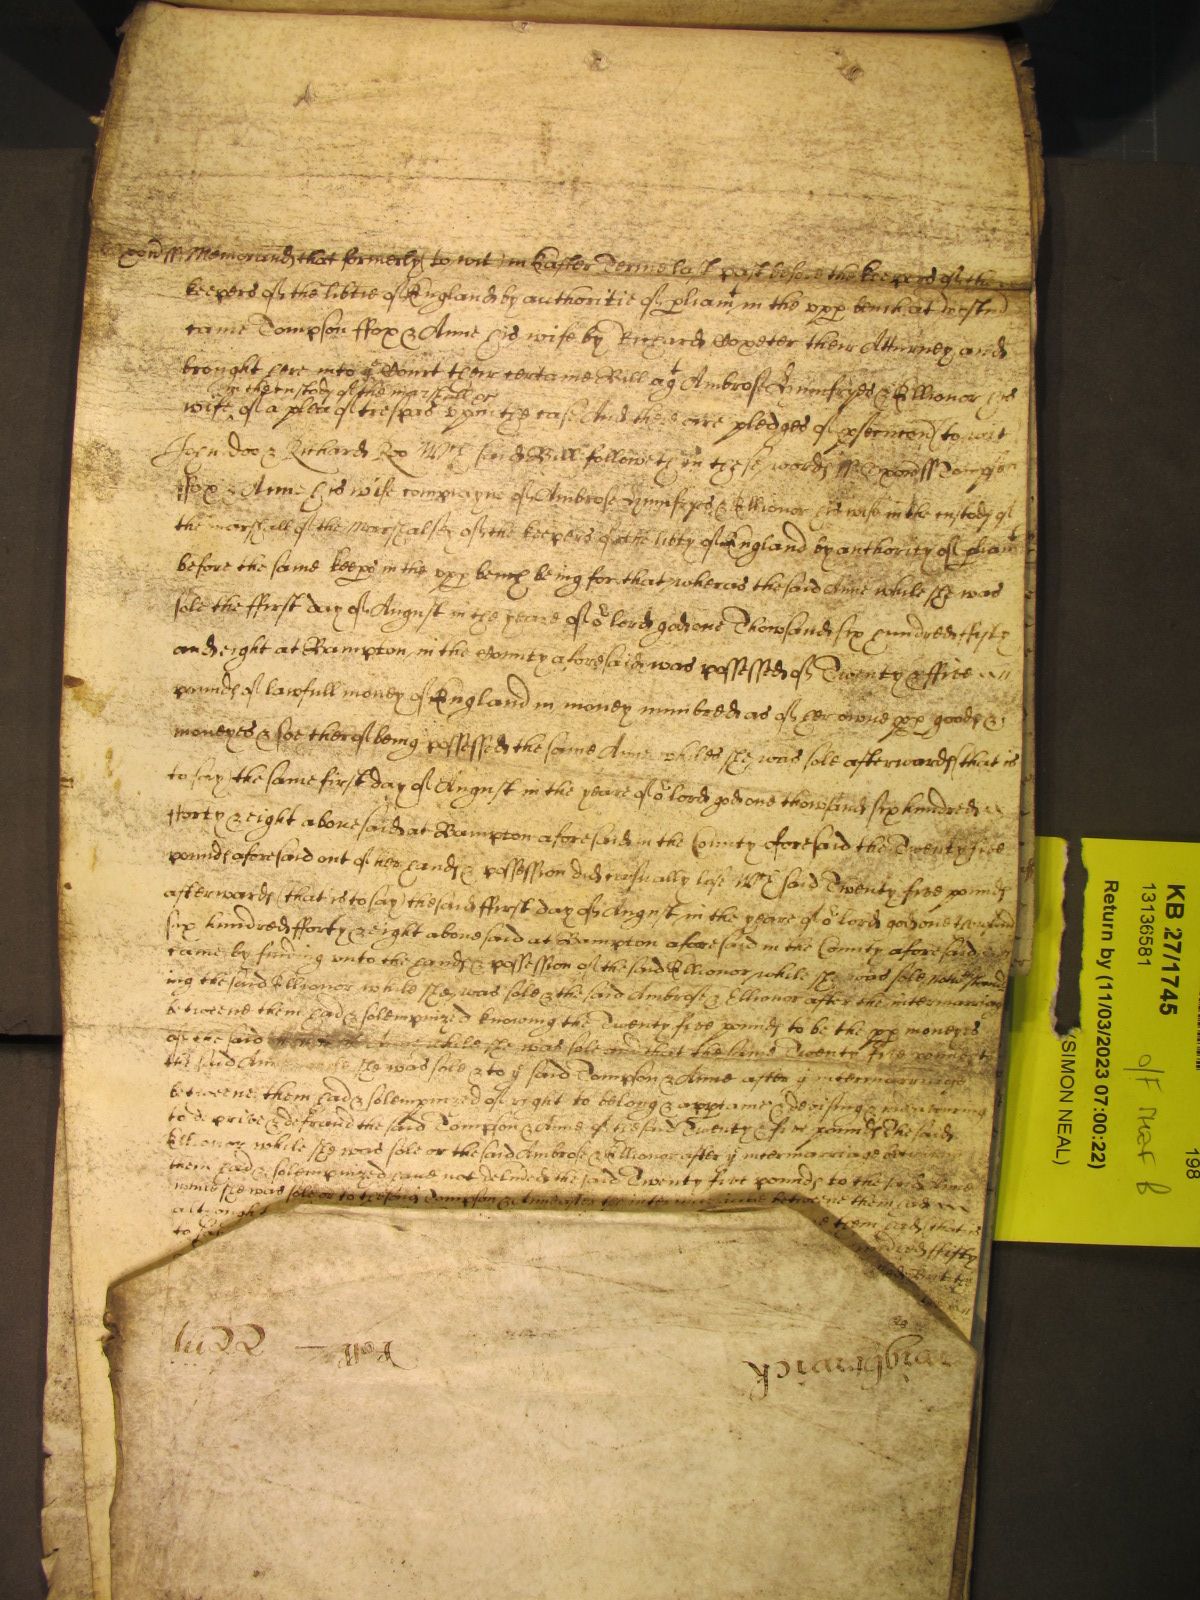 Oxon ss Memorand that formerly (to wit) in Easter Terme last past before the keepers of the
keepers of the libtie of England by authoritie of pliamt in the upp bench at Westm
came Tompson ffox & Anne his wife by Richard Coxeter their Atturney and
brought here into ye Court their certaine Bill agt Ambrose Humfryes & Ellionor his
in the custody of the marshall &c
wife of a plea of trespas upon the case And there are pledges of psecucon to wit
John Doo & Richard Roo Wch said Bill followeth in these words ss Oxon ss Tompson
ffox & Anne his wife complayne of Ambrose Humfryes & Ellionor his wife in the custody of
the marshall of the Marshalsey of the keepers of the libty of England by authority of pliamt
before the same keeps in the upp bench being for that wheras the said Anne while she was
sole the ffirst day of August in the yeare of or lord god one Thowsand six hundred fforty
and eight at Bampton in the County aforesaid was possessed of Twenty & ffive
pounds of lawfull money of England in money numbred as of her owne pp goods &
moneyes & soe therof being possessed the same Anne whiles she was sole afterwards (that is
to say) the same first day of August in the yeare of or lord god one thowsand six hundred
fforty & eight abovesaid at Bampton aforesaid in the County aforesaid the Twenty five
pounds aforesaid out of her hands & possession did casually lose Wch said Twenty five pounds
afterwards (that is to say) the said ffirst day of August in the yeare of or lord god one thowsand
six hundred fforty & eight abovesaid at Bampton aforesaid in the County aforesaid
came by finding unto the hands & possession of the said Ellionor while she was sole notwithstand
ing the said Ellionor while she was sole & the said Ambrose & Ellionor after the intermarriage
betweene them had & solempnized knowing the Twenty five pounds to be the pp moneyes
of the said Anne while she was sole and that the same Twenty five pounds to
the said Anne while she was sole & to ye said Tompson & Anne after ye intermarriage
betweene them had & solempnized of right to belong & apptaine & devising & intending
to deprive & defraud the said Tompson & Anne of the said Twenty & five pounds the said
Ellionor while she was sole or the said Ambrose & Ellionor after ye intermarriage betweene
them had & solempnized have not delived the said Twenty five pounds to the said Anne
while she was sole or to the said Tompson & Anne after the intermarriage betweene them had
although
them had (that is
to say
hundred ffifty
Wightwick
Roll
KB 27/1745
13136581
Return by (11/03/2023 07:00:22)
(SIMON NEAL)
198